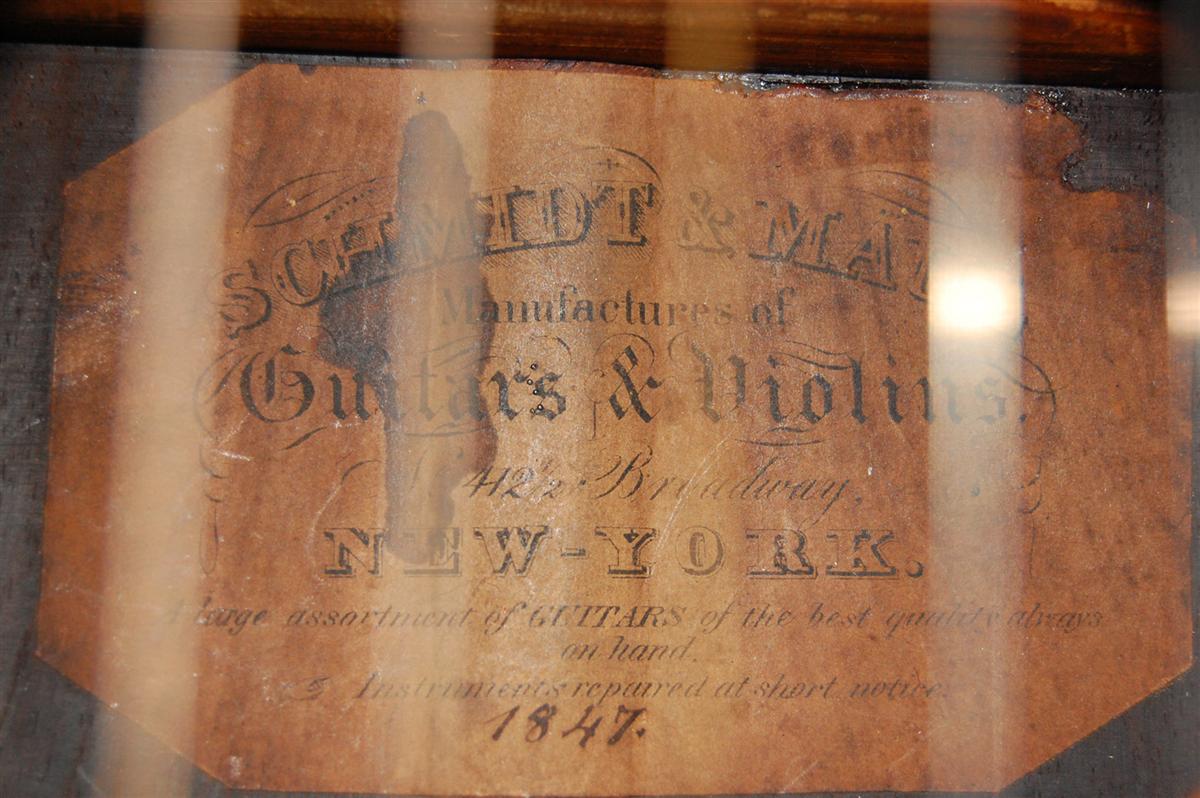 SCHMIDT & MAU
Manufactures of
Guitars & Violins.
N 412½ Broadway,
NEW-YORK.
A large assortment of GUITARS of the best quality always
on hand.
Instruments repaired at short notice.
1847.